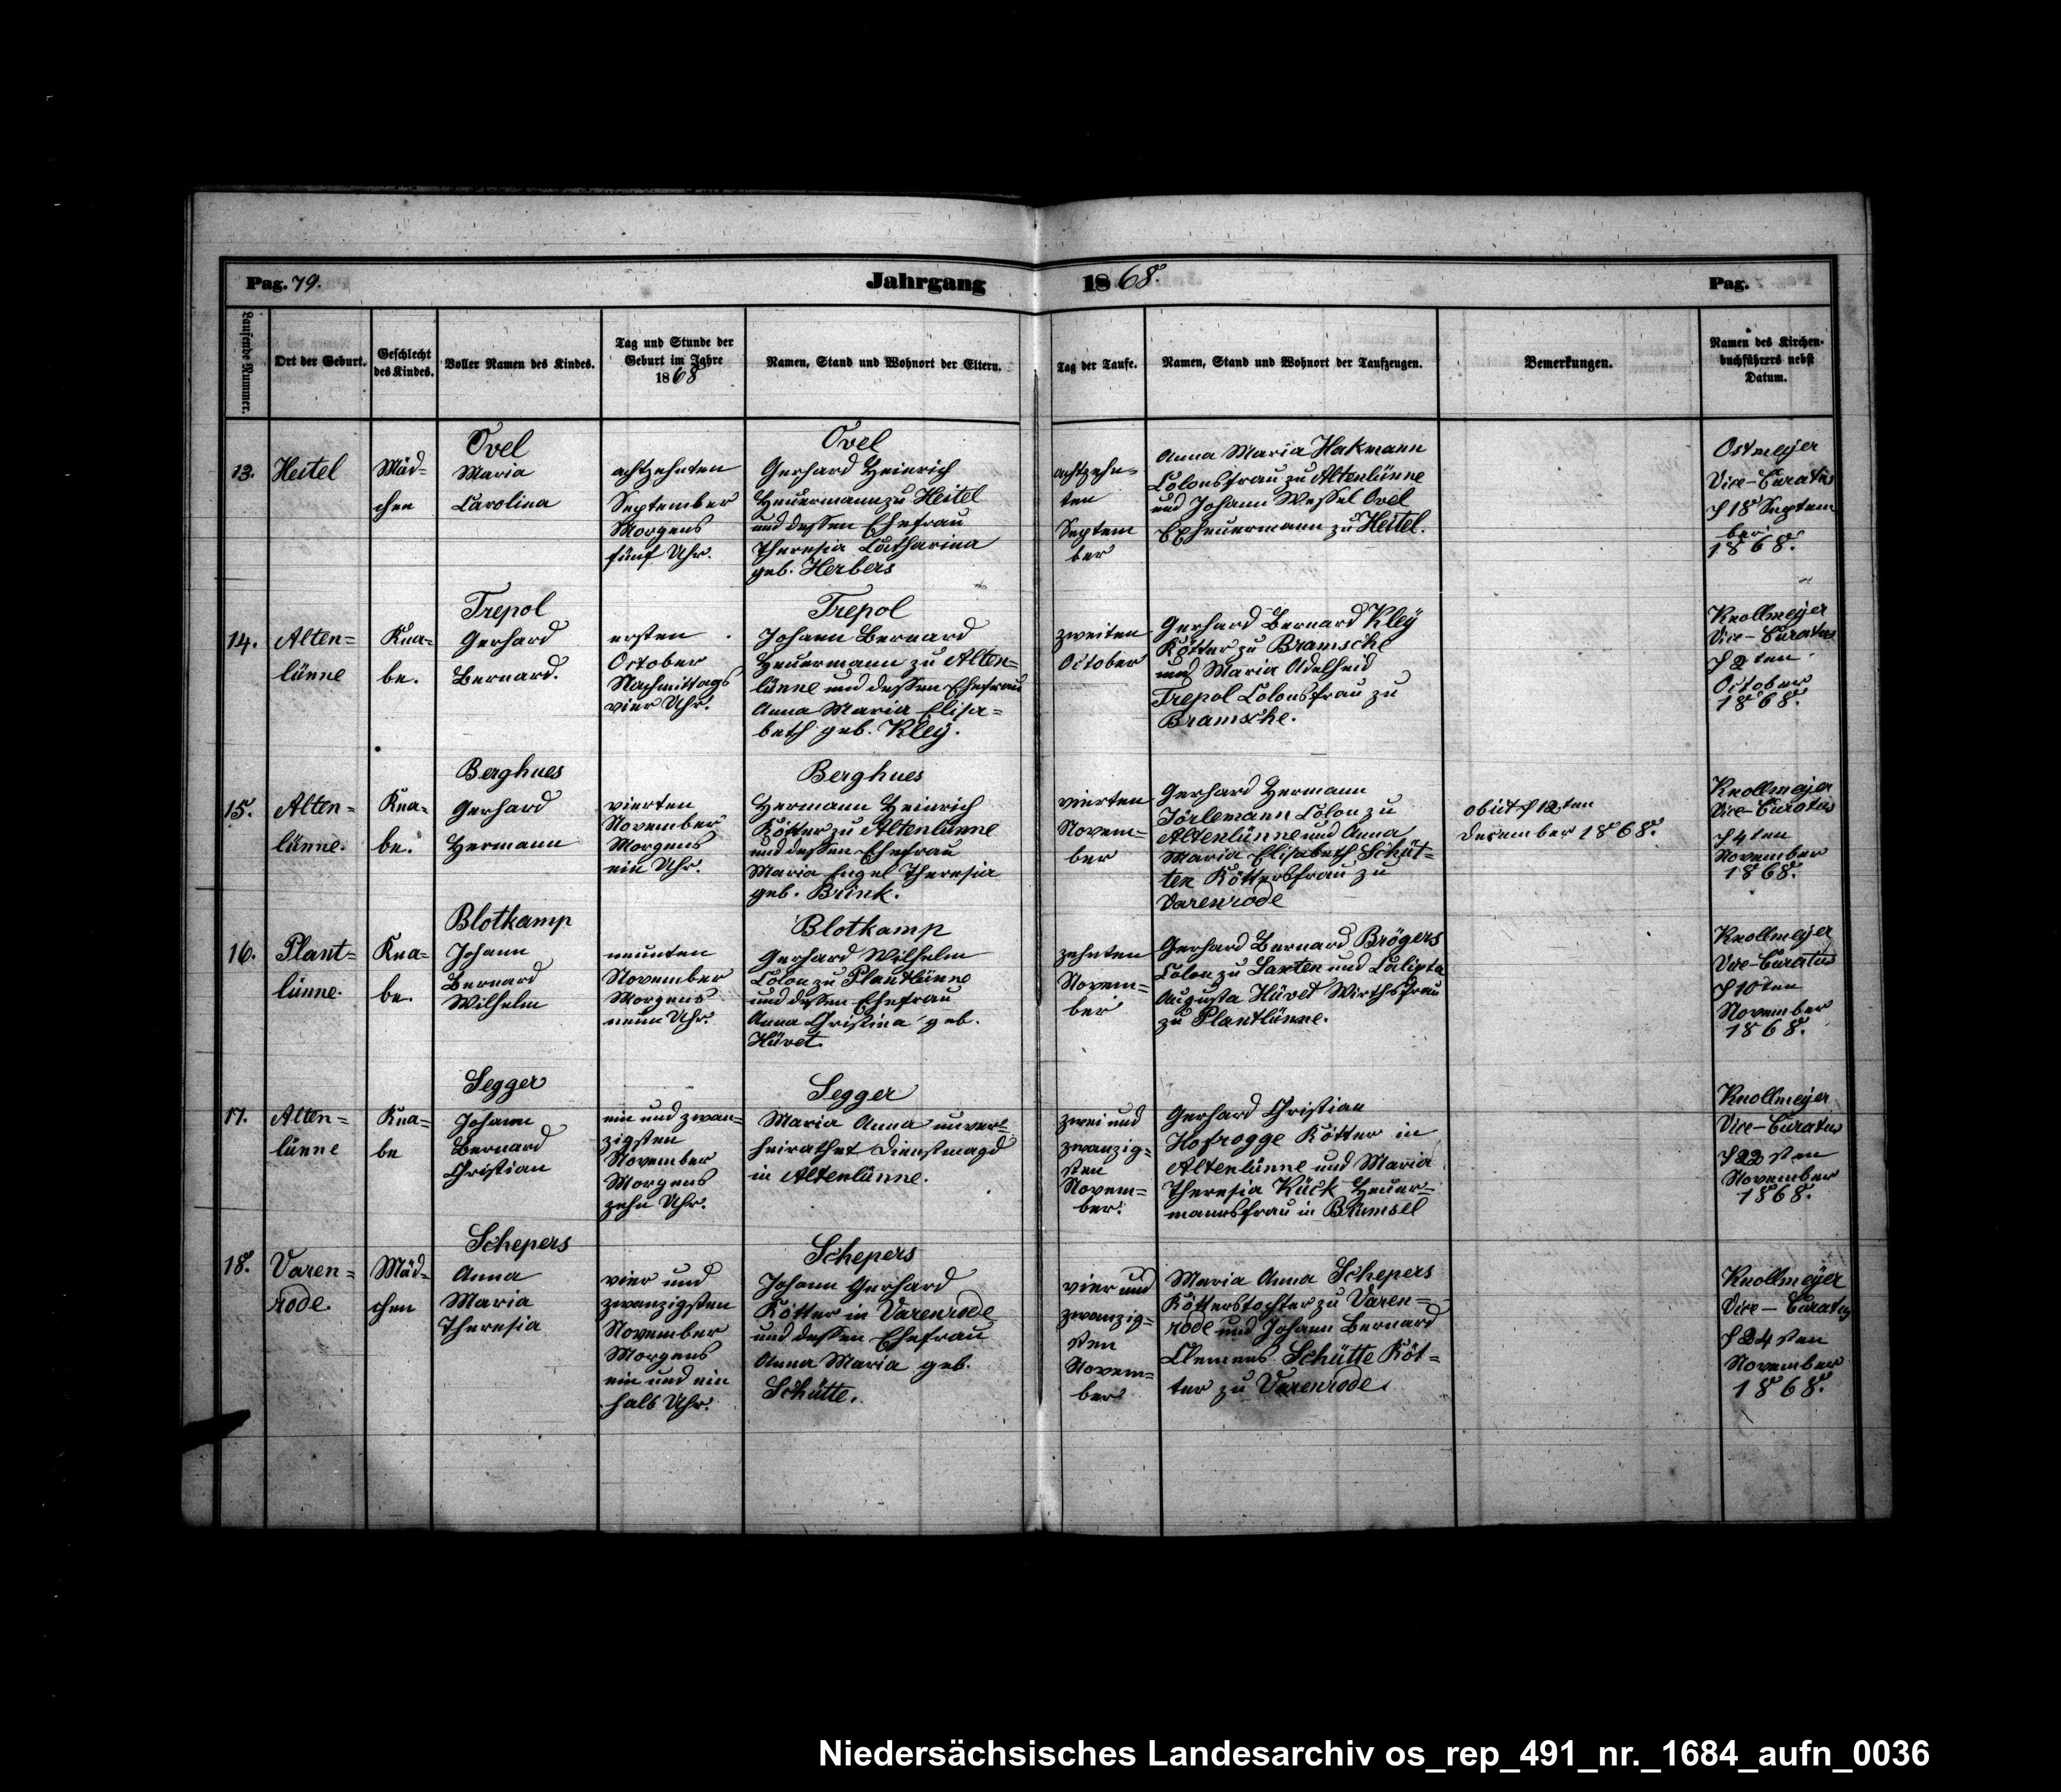 Pag. 79.
Jahrgang
1868.
Pag.
Laufende Nummer.
Ort der Geburt.
Geschlecht
des Kindes.
Voller Namen des Kindes.
Tag und Stunde der
Geburt im Jahre
1868
Namen, Stand und Wohnort der Eltern.
Tag der Taufe.
Namen, Stand und Wohnort der Taufzeugen.
Bemerkungen.
Namen des Kirchen-
buchführers nebst
Datum.
13.
Heitel
Mäd=
chen
Ovel
Maria
Carolina
achtzehnten
September
Morgens
fünf Uhr.
Ovel
Gerhard Heinrich
Heuermann zu Heitel
und dessen Ehefrau
Theresia Catharina
geb. Herbers
achtzehn=
ten
Septem
ber
Anna Maria Hakmann
Colonsfrau zu Altenlünne
und Johann Wessel Ovel
Exheuermann zu Heitel.
Ostmeyer
Vice-Curatus
d 18 Septem
ber
1868.
14.
Alten=
lünne
Kna=
be.
Trepol
Gerhard
Bernard.
ersten
October
Nachmittags
vier Uhr.
Trepol
Johann Bernard
Heuermann zu Alten=
lünne und dessen Ehefrau
Anna Maria Elisa=
beth geb. Kley.
zweiten
October
Gerhard Bernard Kley
Kötter zu Bramsche
und Maria Adelheid
Trepol Colonsfrau zu
Bramsche.
Knollmeyer
Vice-Curatus
d 2ten
October
1868.
15.
Alten=
lünne.
Kna=
be.
Berghues
Gerhard
Hermann
vierten
November
Morgens
ein Uhr.
Berghues
Hermann Heinrich
Kötter zu Altenlünne
und dessen Ehefrau
Maria Engel Theresia
geb. Brink.
vierten
Novem=
ber
Gerhard Hermann
Colon zu
Altenlünne und Anna
Maria Elisabeth Schüt=
ten Köttersfrau zu
Varenrode
obiit d 12ten
December 1868.
Knollmeyer
Vice-Curatus
d 4ten
November
1868.
16.
Plant=
lünne.
Kna=
be.
Blotkamp
Johann
Bernard
Wilhelm
neunten
November
Morgens
neun Uhr.
Blotkamp
Gerhard Wilhelm
Colon zu Plantlünne
und dessen Ehefrau
Anna Christina geb.
Hüvet.
zehnten
Novem=
ber
Gerhard Bernard Brögers
Colon zu Laxten und Calixta
Augusta Hüvet Wirthsfrau
zu Plantlünne.
Knollmeyer
Vice-Curatus
d 10ten
November
1868.
17.
Alten=
lünne
Kna=
be
Segger
Johann
Bernard
Christian
ein und zwan=
zigsten
November
Morgens
zehn Uhr.
Segger
Maria Anna unver=
heirathet Dienstmagd
in Altenlünne.
zwei und
zwanzig=
sten
Novem=
ber.
Gerhard Christian
Hofrogge Kötter in
Altenlünne und Maria
Theresia Kück Heuer=
mannsfrau in Brümsel
Knollmeyer
Vice-Curatus
d 22sten
November
1868.
18.
Varen=
rode.
Mäd=
chen
Schepers
Anna
Maria
Theresia
vier und
zwanzigsten
November
Morgens
ein und ein
halb Uhr.
Schepers
Johann Gerhard
Kötter in Varenrode
und dessen Ehefrau
Anna Maria geb.
Schütte.
vier und
zwanzig=
sten
Novem=
ber
Maria Anna Schepers
Kötterstochter zu Varen=
rode und Johann Bernard
Clemens Schütte Köt=
ter zu Varenrode.
Knollmeyer
Vice-Curatus
d 24sten
November
1868.
Niedersächsisches Landesarchiv os_rep_491_nr._1684_aufn_0036